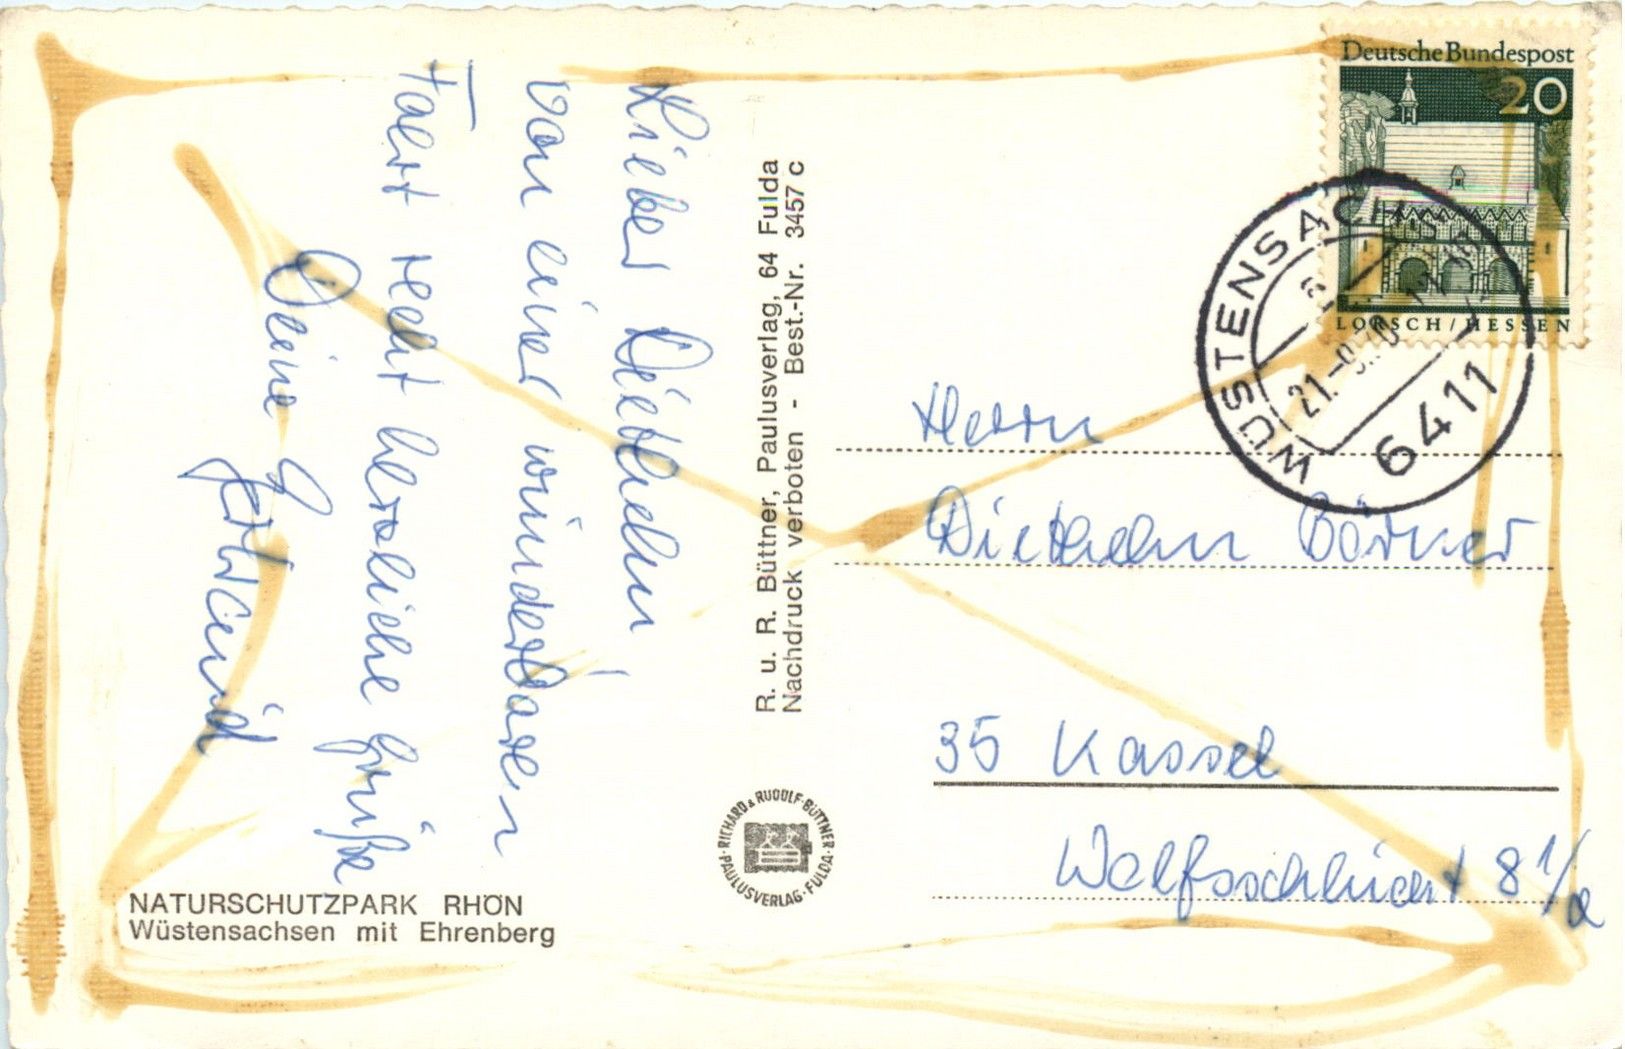 Lieber Diethelm!
Von einer wunderbaren
Fahrt recht herzliche Grüße
Deine
R. u. R. Büttner, Paulusverlag, 64 Fulda
Nachdruck verboten - Best.-Nr. 3457 c
RICHARD & RUDOLF BÜTTNER · PAULUSVERLAG · FULDA ·
NATURSCHUTZPARK RHÖN
Wüstensachsen mit Ehrenberg
Deutsche Bundespost
20
LORSCH/HESSEN
WÜSTENSACHSEN
21.-9.70
6411
Herrn
Diethelm Börner
35 Kassel
Wolfsschlucht 8 1/2